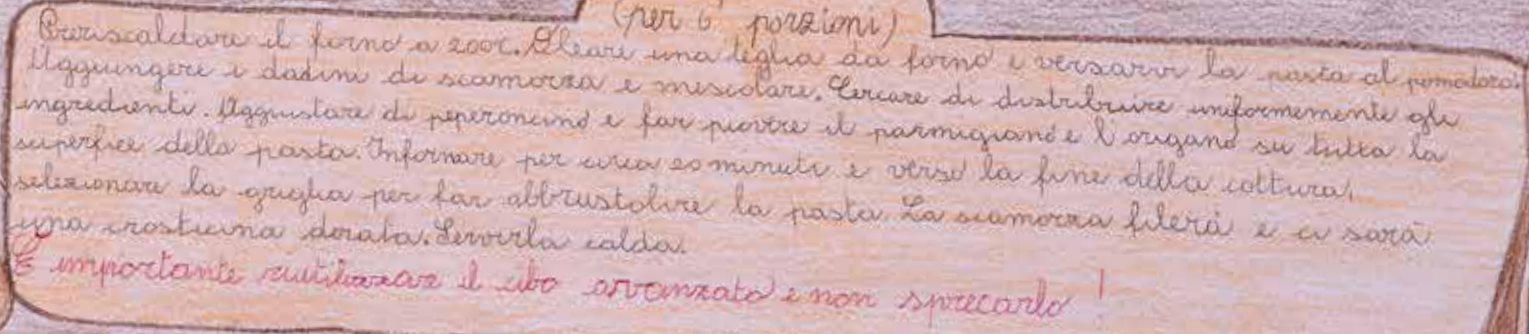 (per 6 porzioni)
Preriscaldare il forno a 200C. Oleare una teglia da forno e versarvi la pasta al pomodoro.
Aggiungere i dadini di scamorza e mescolare. Cercare di distribuire uniformemente gli
ingredienti. Aggiustare di peperoncino e far piovere il parmigiano e l'origano su tutta la
superfice della pasta. Infornare per circa 20 minuti e verso la fine della cottura,
selezionare la griglia per far abbrustolire la pasta. La scamorza filerà e ci sarà
una crosticina dorata. Servirla calda.
È importante riutilizzare il cibo avanzato e non sprecarlo!